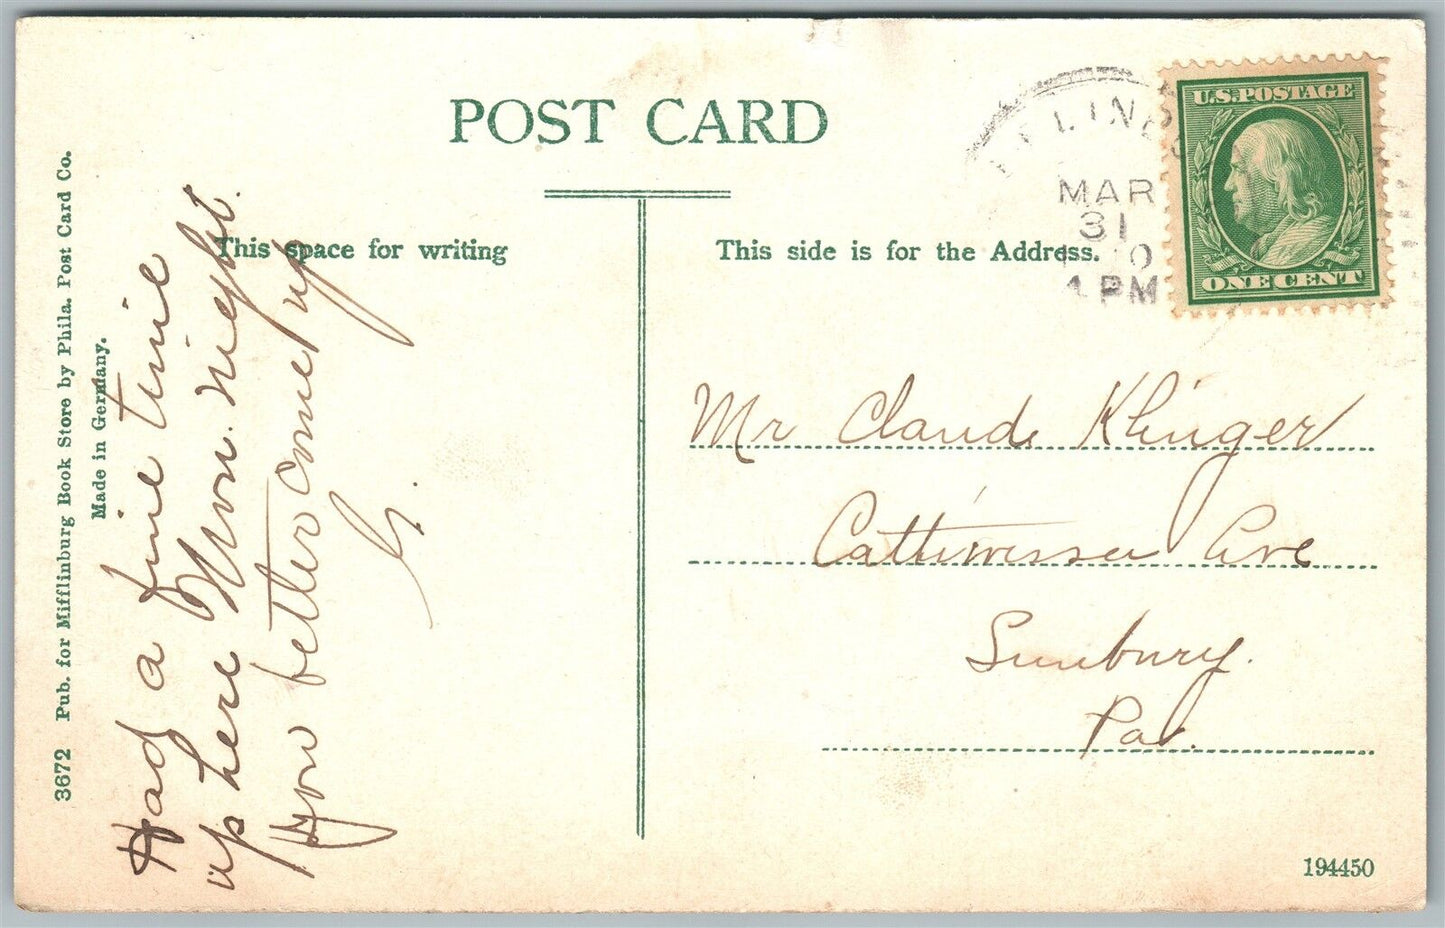 POST CARD
This space for writing
This side is for the Address.
U.S. POSTAGE
ONE CENT
MAR
31
PM
Mr Claude Klinger
Cattiwissa Ave
Sunbury.
Pa.
194450
3672 Pub. for Mifflinburg Book Store by Phila. Post Card Co.
Made in Germany.
Had a fine time
up here Mon. night.
You better come up
G.